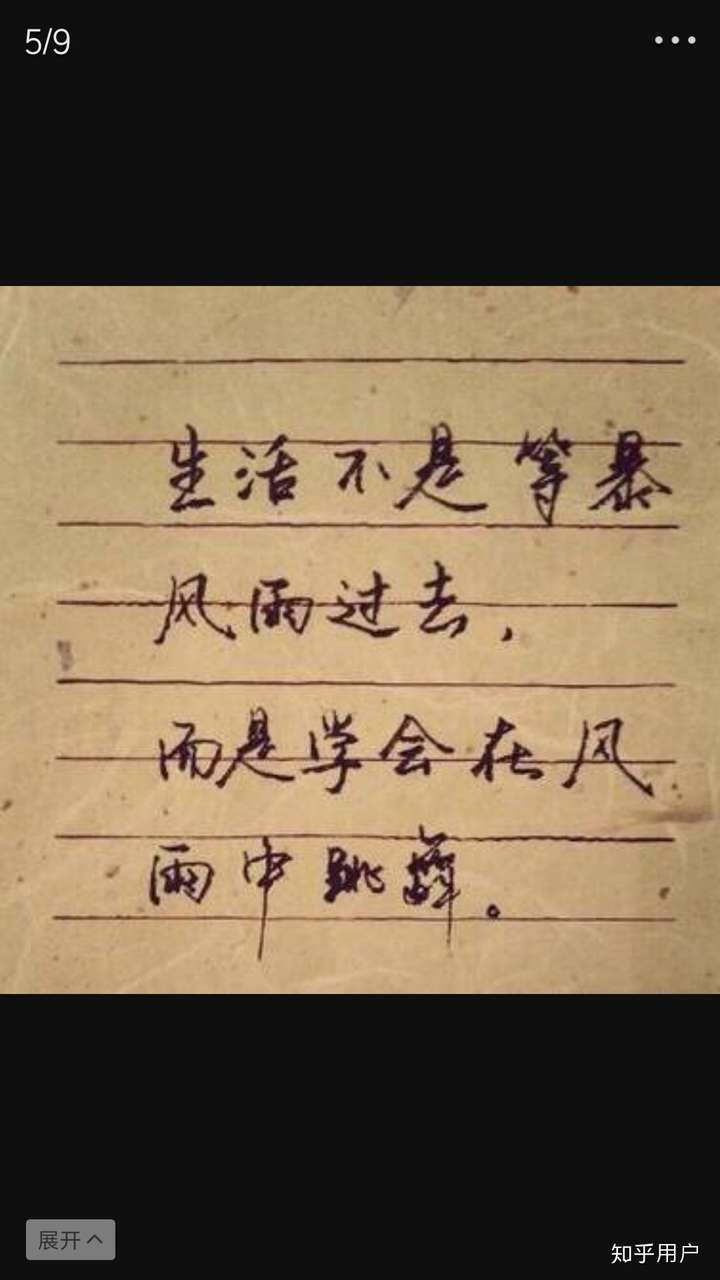 5/9
生活不是等暴
风雨过去，
而是学会在风
雨中跳舞。
展开
知乎用户